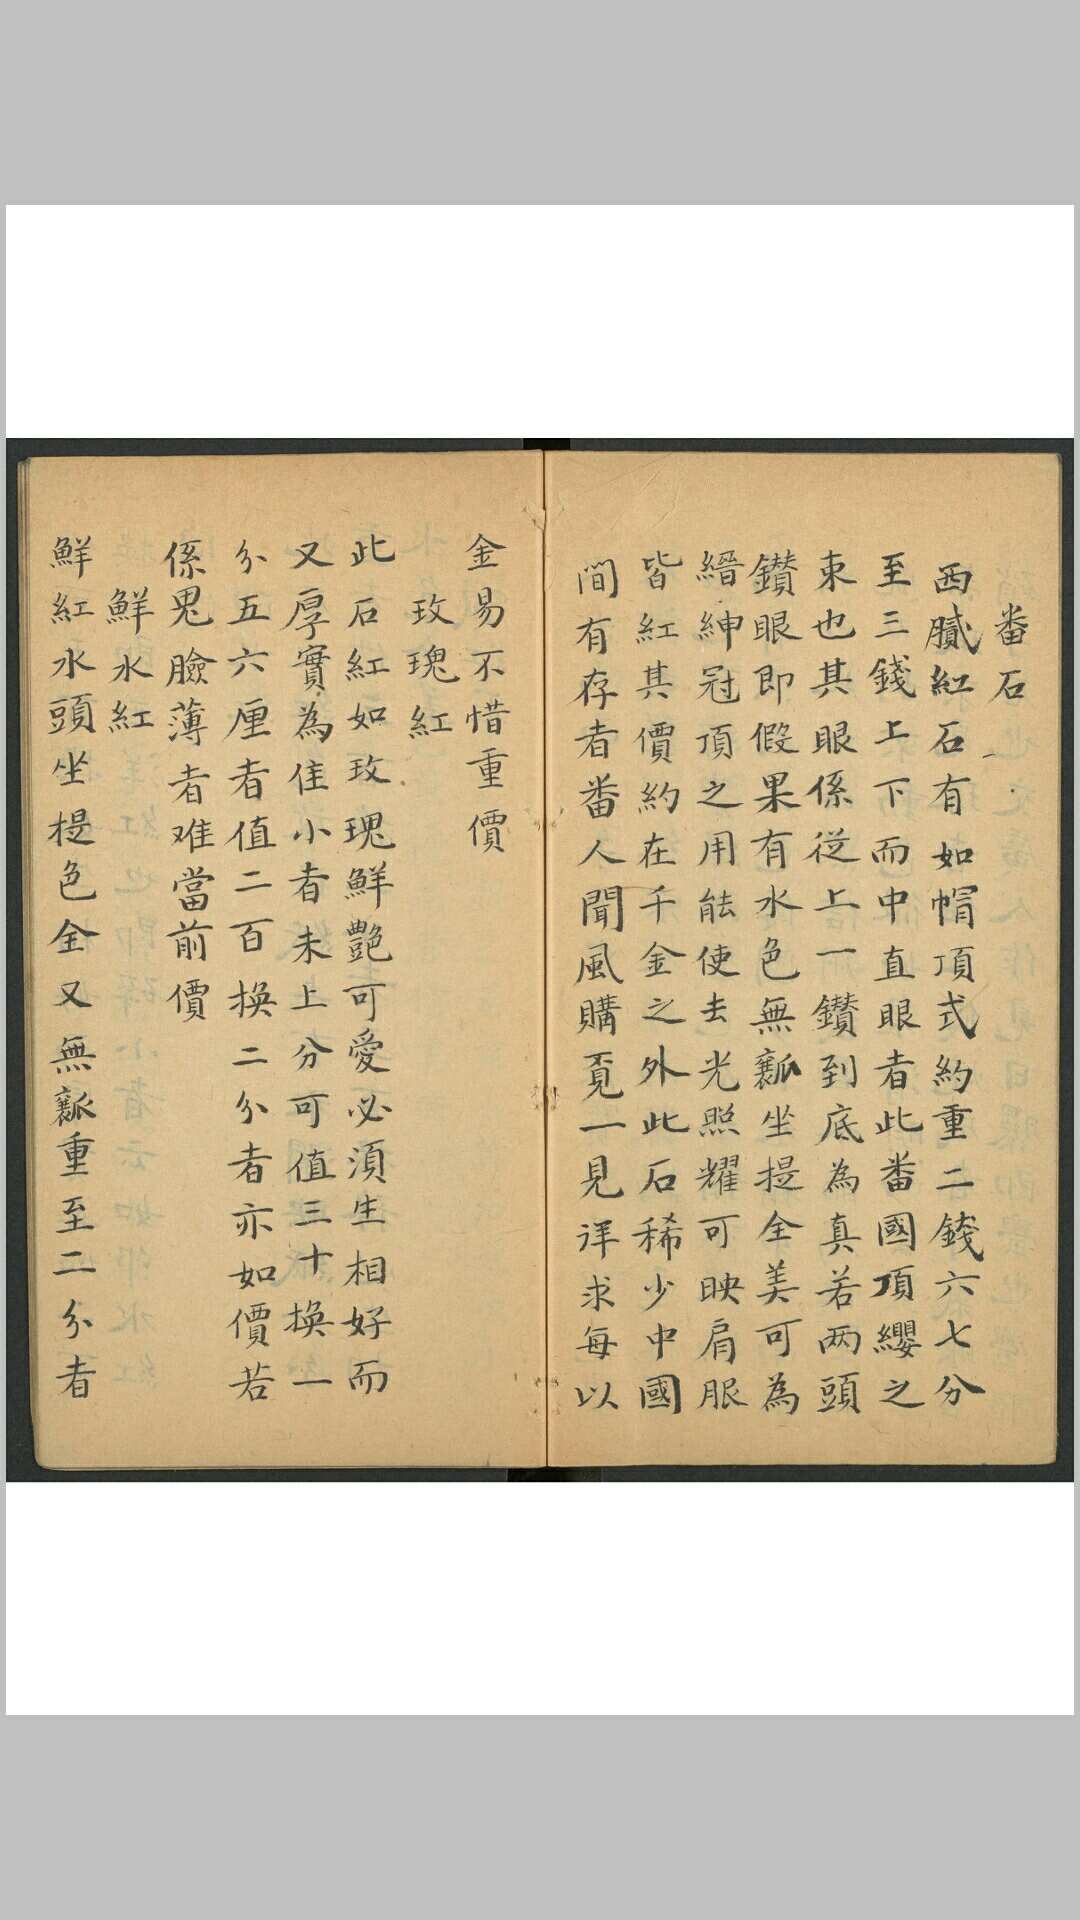 番石
西膩紅石有如帽頂式約重二錢六七分
至三錢上下而中直眼者此番國頂纓之
東也其眼係從上一鑽到底為真若两頭
鑽眼即假果有水色無瓤坐提全美可為
縉紳冠頂之用能使去光照耀可映肩服
皆紅其價約在千金之外此石稀少中國
間有存者番人聞風購覔一見详求每以
金易不惜重價
玫瑰紅
此石紅如玫瑰鮮艷可愛必須生相好而
又厚實為佳小者未上分可值三十換一
分五六厘者值二百換二分者亦如價若
係鬼臉薄者难當前價
鮮水紅
鮮紅水頭坐提色全又無瓤重至二分者